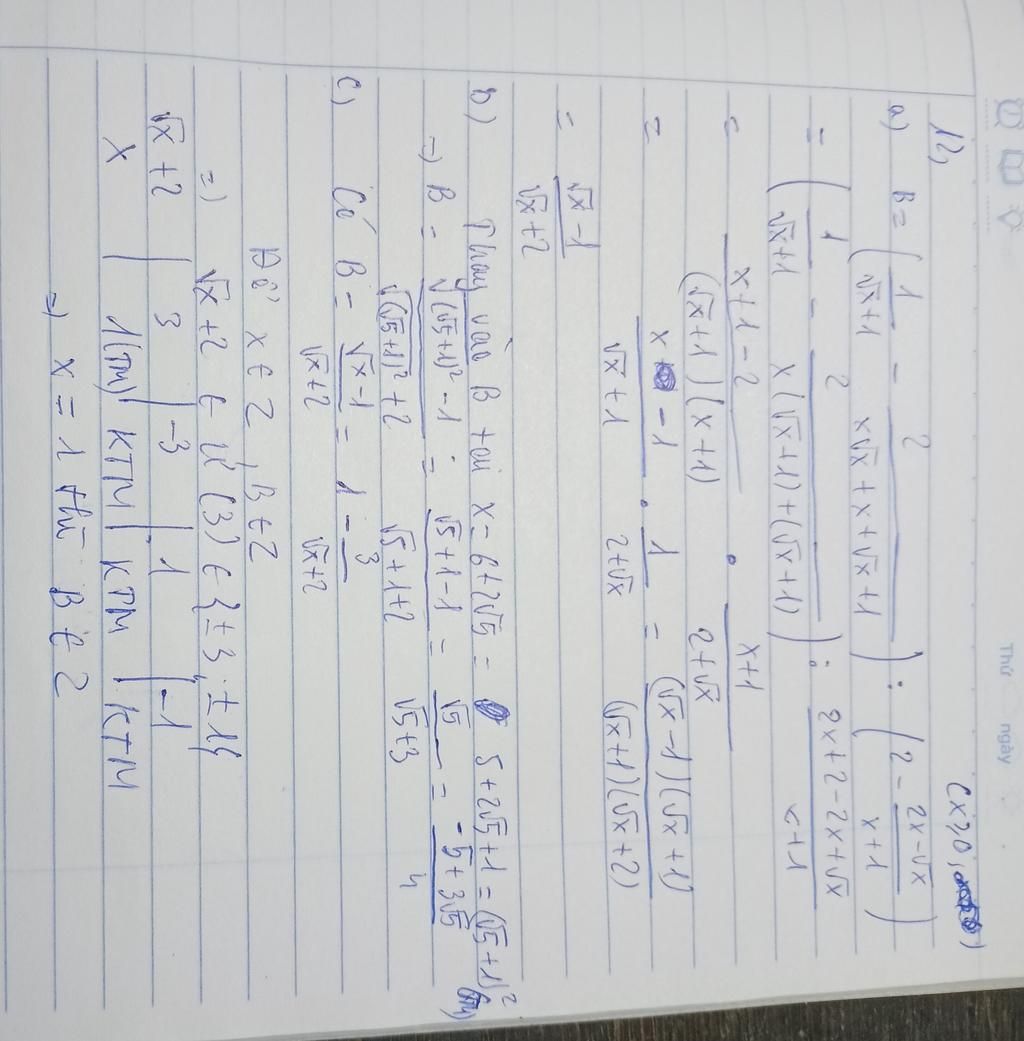 Thứ ngày
12, (x≥0, )
a) B = (1/(√x+1) - 2/(x√x+x+√x+1)) : (2 - (2x-√x)/(x+1))
= (1/(√x+1) - 2/(x(√x+1)+(√x+1))) : (2x+2-2x+√x)/(x+1)
= (x+1-2)/((√x+1)(x+1)) · (x+1)/(2+√x)
= (x-1)/(√x+1) · 1/(2+√x) = ((√x-1)(√x+1))/((√x+1)(√x+2))
= (√x-1)/(√x+2)
b) Thay vào B tại x=6+2√5 = 5+2√5+1=(√5+1)² (tm)
=) B = (√(√5+1)² -1)/(√(√5+1)² +2) = (√5+1-1)/(√5+1+2) = √5/(√5+3) = (-5+3√5)/4
c) Có B = (√x-1)/(√x+2) = 1 - 3/(√x+2)
Để x ∈ Z, B ∈ Z
=) √x+2 ∈ Ư(3) ∈ {±3, ±1}
√x+2 | 3 | -3 | 1 | -1
x | 1(TM) | KTM | KTM | KTM
=) x = 1 thì B ∈ Z